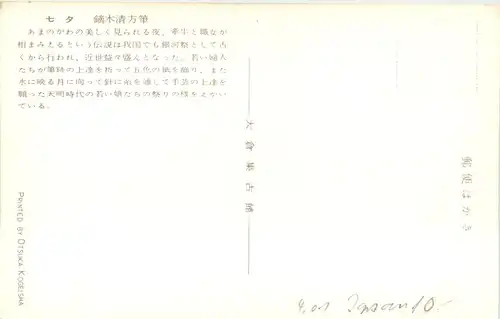 七夕　鏑木清方筆
あまのがわの美しく見られる夜、牽牛と織女が
相まみえるという伝説は我国でも銀河祭として古
くから行われ、近世益々盛んとなった。若い婦人
たちが筆跡の上達を祈って五色の紙を飾り、また
水に映る月に向って針に糸を通して手芸の上達を
願った天明時代の若い娘たちの祭りの様をえがい
ている。
大倉集古館
郵便はがき
PRINTED BY OTSUKA KOGEISHA